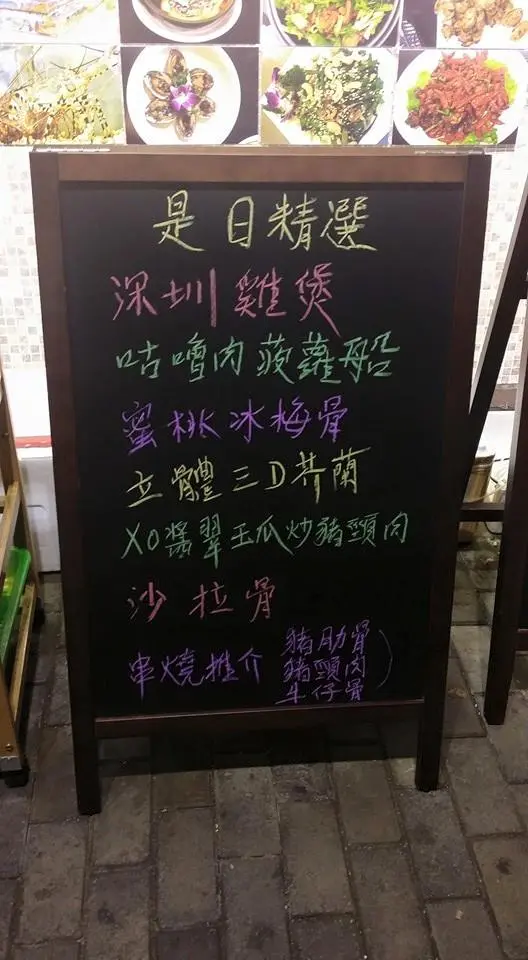 是日精選
深圳雞煲
咕嚕肉菠蘿船
蜜桃冰梅骨
立體三D芥蘭
XO醬翠玉瓜炒豬頸肉
沙拉骨
串燒推介
豬肋骨
豬頸肉
牛仔骨